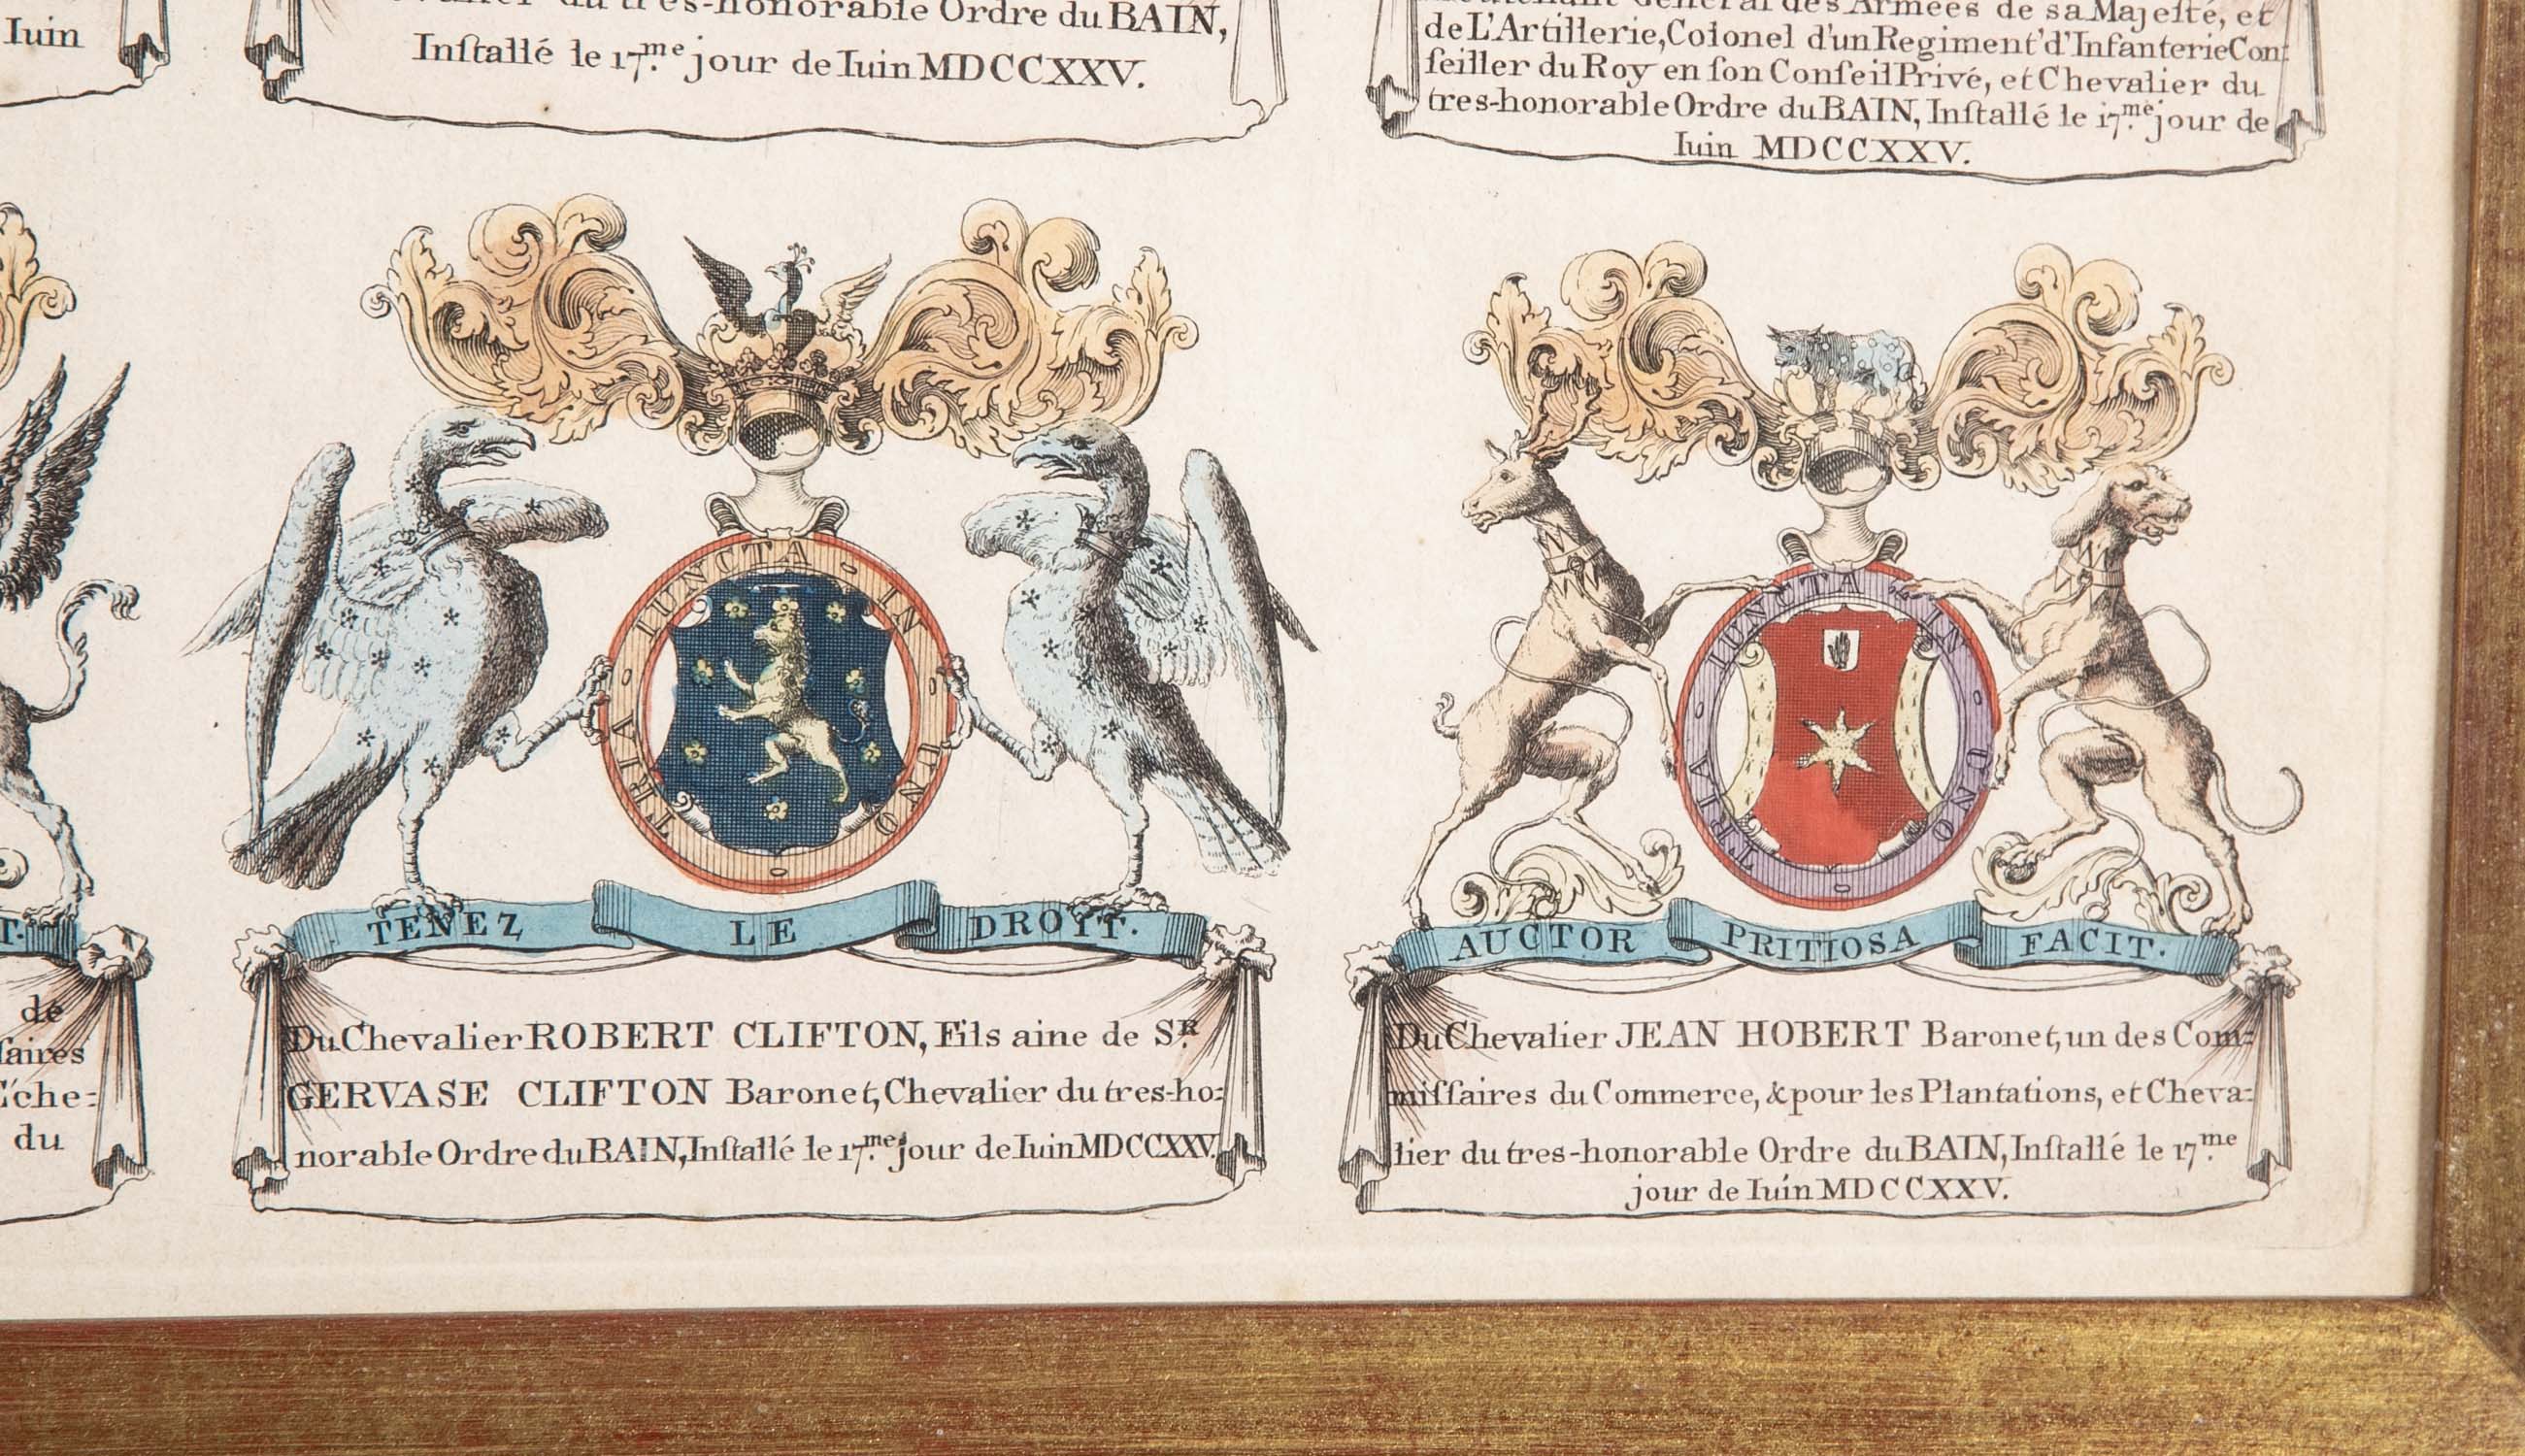 Iuin
tres-honorable Ordre du BAIN,
Inſtallé le 17.me jour de Iuin MDCCXXV.
General des Armées de sa Majeſté, et
de L'Artillerie, Colonel d'un Regiment d'Infanterie Con:
ſeiller du Roy en ſon Conſeil Privé, et Chevalier du
tres-honorable Ordre du BAIN, Inſtallé le 17.me jour de
Iuin MDCCXXV.
TRIA IUNCTA IN UNO
TENEZ LE DROIT.
Du Chevalier ROBERT CLIFTON, Fils aine de S.R
GERVASE CLIFTON Baronet, Chevalier du tres-ho:
norable Ordre du BAIN, Inſtallé le 17.me jour de Iuin MDCCXXV.
TRIA IUNCTA IN UNO
AUCTOR PRITIOSA FACIT.
Du Chevalier JEAN HOBERT Baronet, un des Com:
miſſaires du Commerce, & pour les Plantations, et Cheva:
lier du tres-honorable Ordre du BAIN, Inſtallé le 17.me
jour de Iuin MDCCXXV.
T.
de
ſaires
che:
du